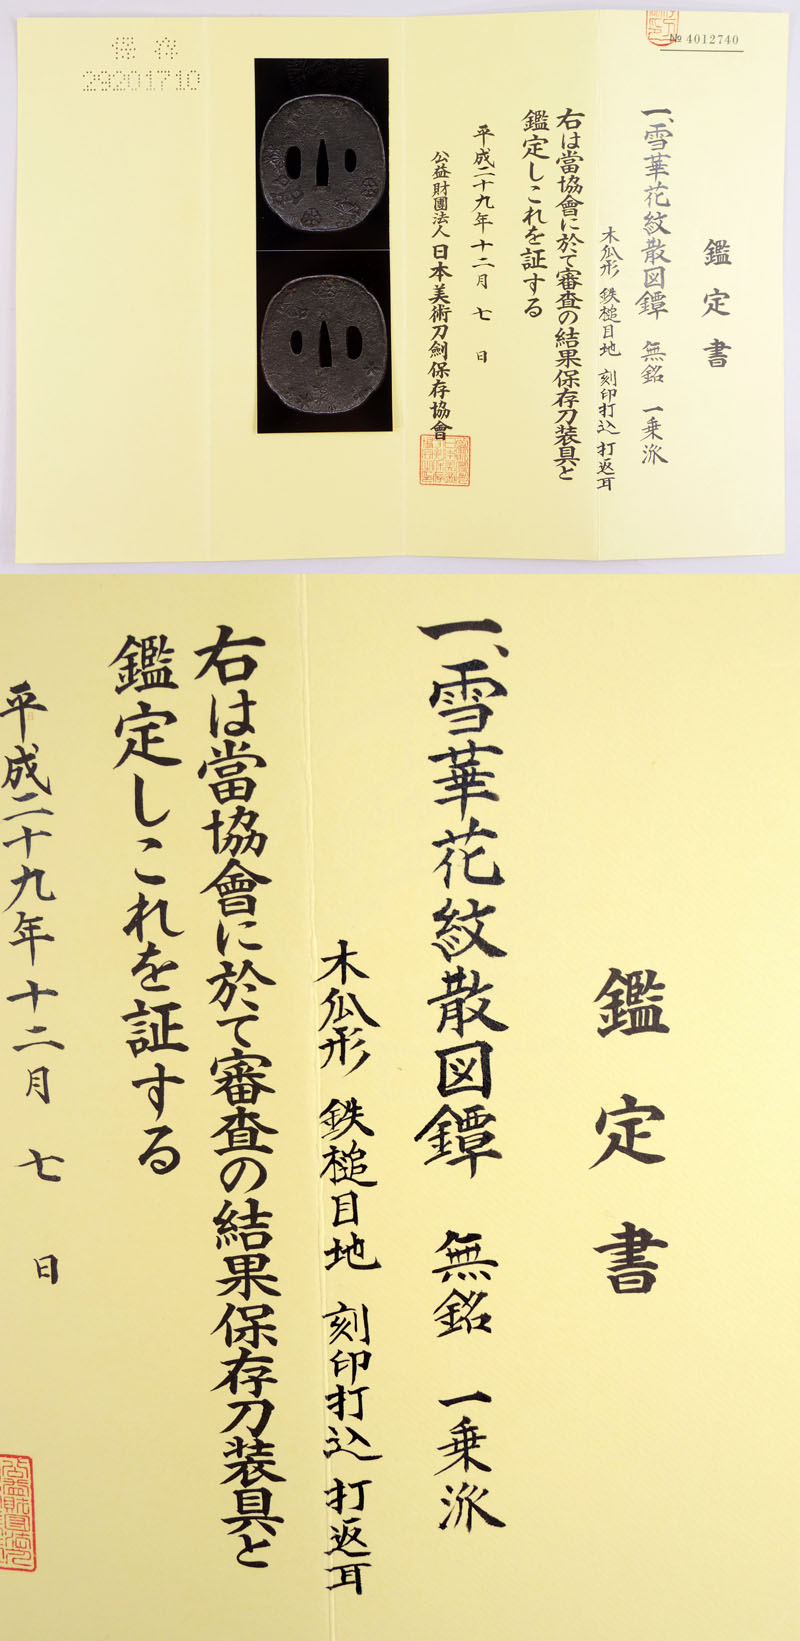 № 4012740
鑑定書
一、雪華花紋散図鐔 無銘 一乗派
木瓜形 鉄槌目地 刻印打込 打返耳
右は當協會に於て審査の結果保存刀装具と
鑑定しこれを証する
平成二十九年十二月七日
公益財團法人日本美術刀劍保存協會
保存
29201710
鑑定書
一、雪華花紋散図鐔 無銘 一乗派
木瓜形 鉄槌目地 刻印打込 打返耳
右は當協會に於て審査の結果保存刀装具と
鑑定しこれを証する
平成二十九年十二月七日